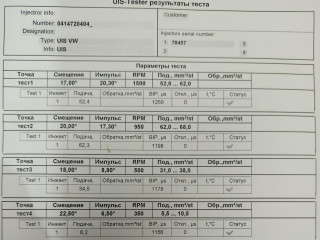 UIS-Tester результаты теста
Injector info:
Customer:
Number: 0414720404_
Designation:
Injectors serial number
Type: UIS VW
1 78457 3
Info: UIS
2 4
Параметры теста
Точка Смещение Импульс RPM Под., mm³/st Обр.,mm³/st
тест1 17,00° 20,30° 1500 52,0 ... 62,0
Test 1 Инжект Подача, Обратка,mm³/st BIP, µs Откл., µs t,°C Статус
52,4 1250 0
Точка Смещение Импульс RPM Под./st Обр.,mm³/st
тест2 20,00° 17,30° 950 62,0 ... 68,0
Test 1 Инжект Подача, Обратка,mm³/st BIP, µs Откл., µs t,°C Статус
62,3 1198 0
Точка Смещение Импульс RPM Под./st Обр.,mm³/st
тест3 18,00° 8,80° 500 31,0 ... 38,0
Test 1 Инжект Подача, Обратка,mm³/st BIP, µs Откл., µs t,°C Статус
34,5 1178 0
Точка Смещение Импульс RPM Под., mm³/st Обр.,mm³/st
тест4 22,50° 6,50° 350 5,5 ... 10,5
Test 1 Инжект Подача, Обратка,mm³/st BIP, µs Откл., µs t,°C Статус
6,2 1156 0